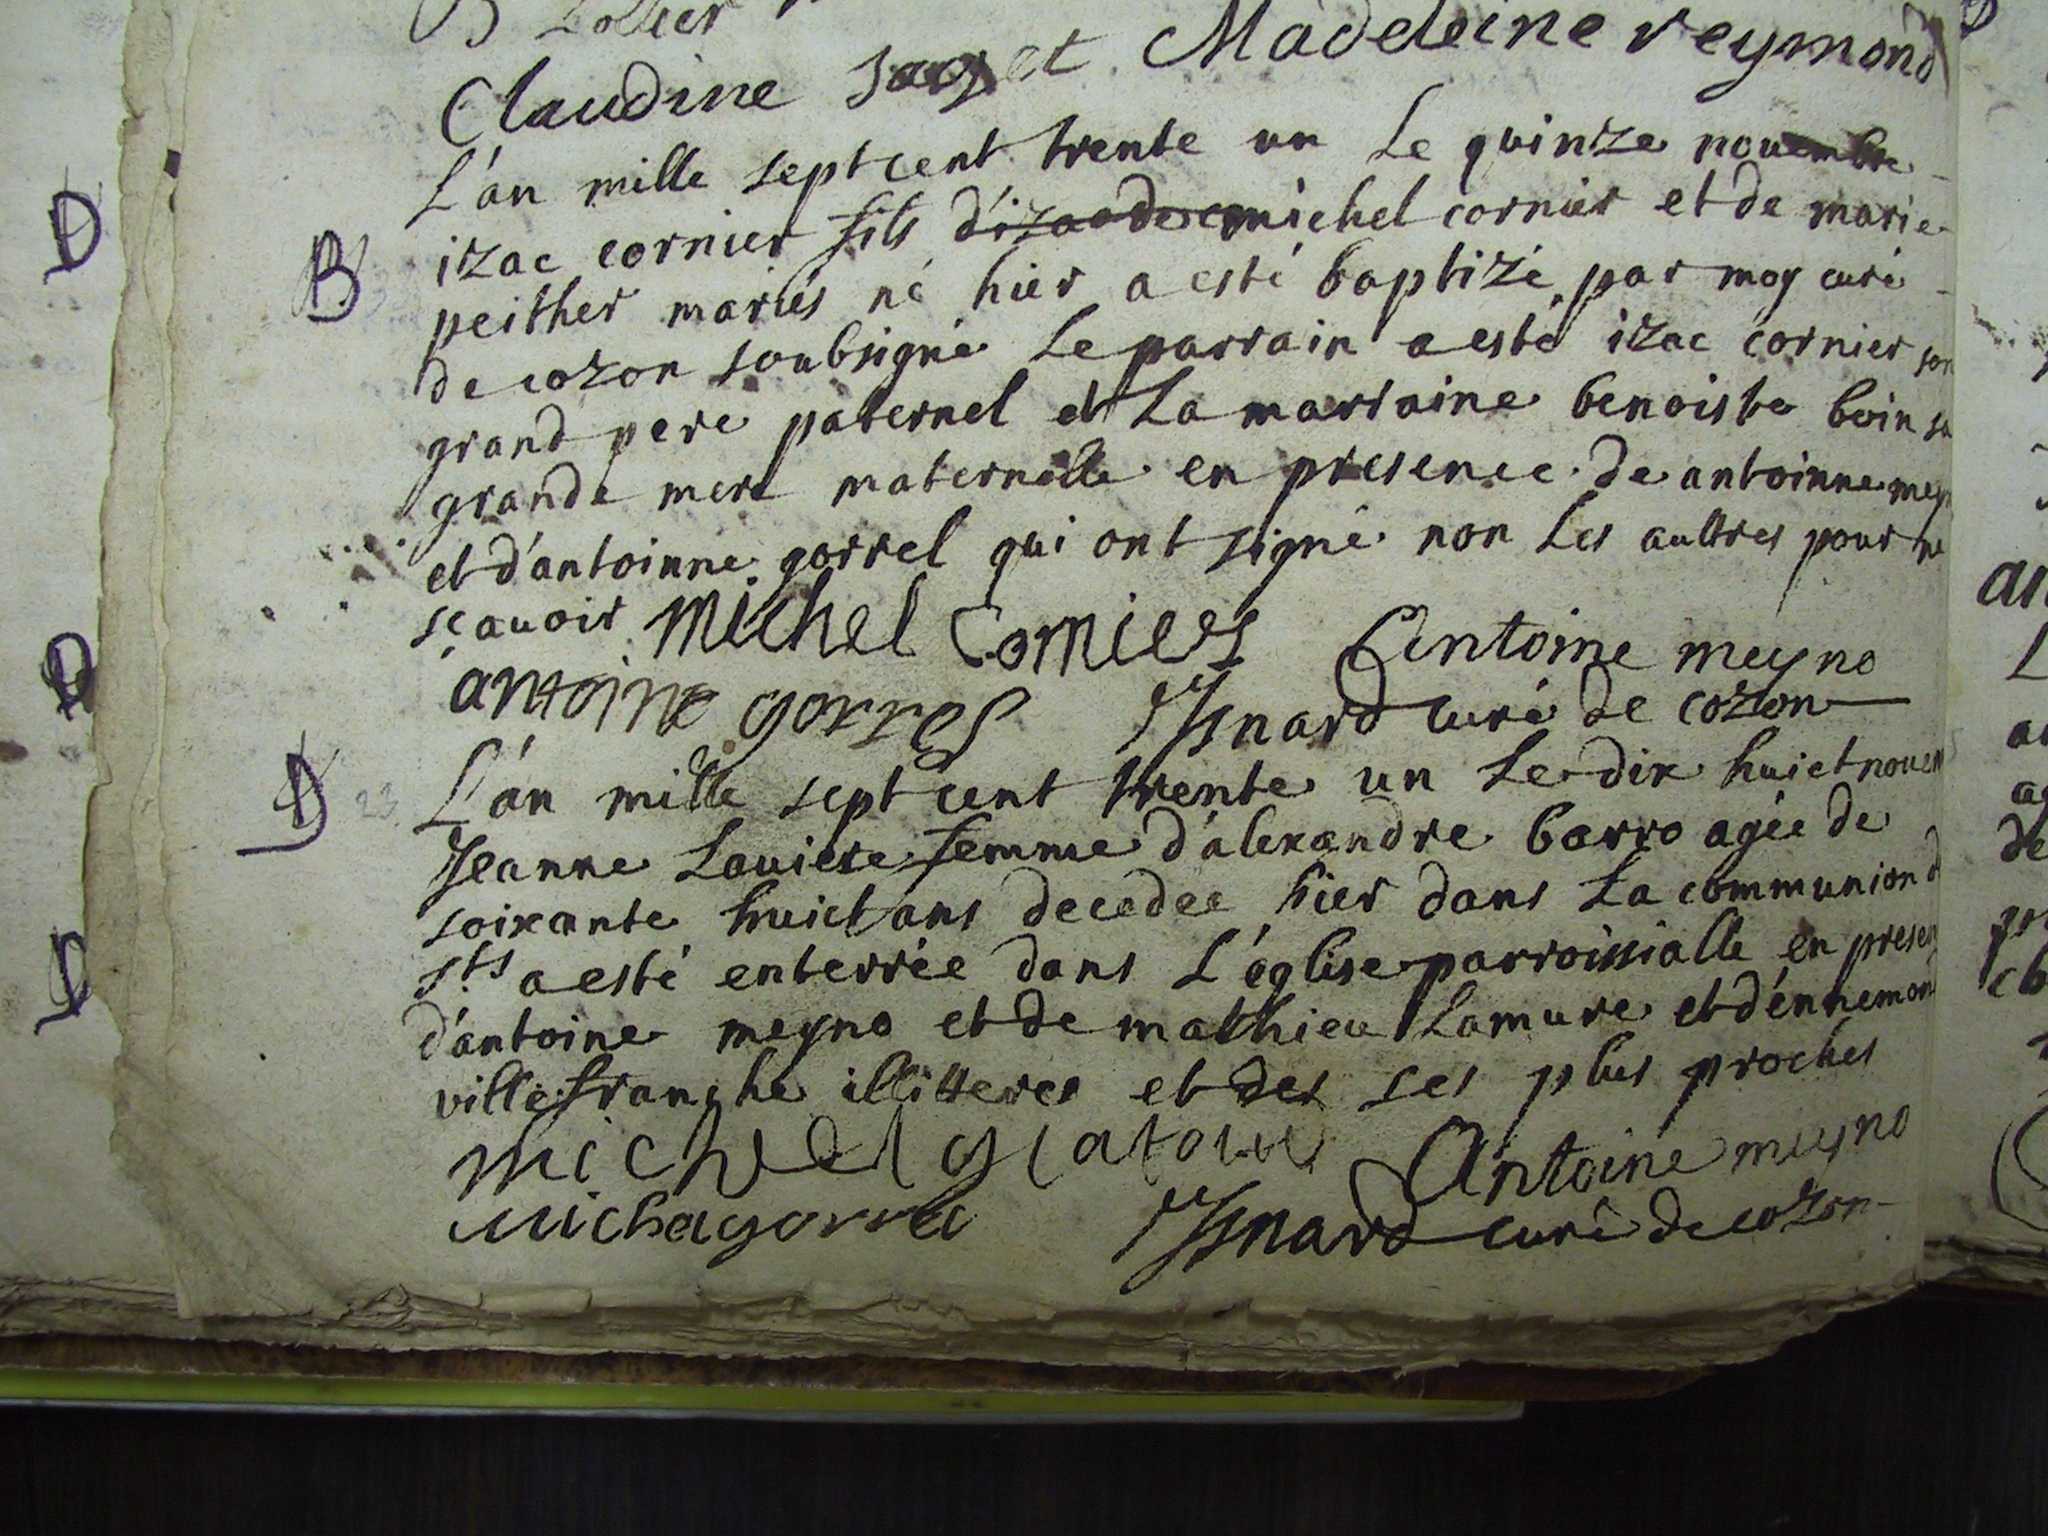 Claudine et Madeleine reymond
L'an mille sept cent trente un Le quinze nouembre
B
izac cornier fils michel cornier et de marie
peither mariés né hier a esté baptizé par moy curé
de cozon soubsigné Le parrain a esté izac cornier son
grand pere paternel et La marraine benoiste boin sa
grande mere maternelle en presence de antoinne mey
et d'antoinne gorrel qui ont signé non Les aultres pour ne
sçauoir michel Cornier Antoine meyno
antoine gorrel Isnard curé de cozon
D 23
L'an mille sept cent trente un Le dix huict nouem
Jeanne Louiese femme d'alexandre barro agée de
soixante huict ans decedee hier dans La communion d
sts a esté enterrée dans L'église parroissialle en presen
d'antoine meyno et de mathieu Lamure et d'ennemon
villefranche illitteres et des ses plus proches
michel Antoine meyno
Isnard curé de cozon